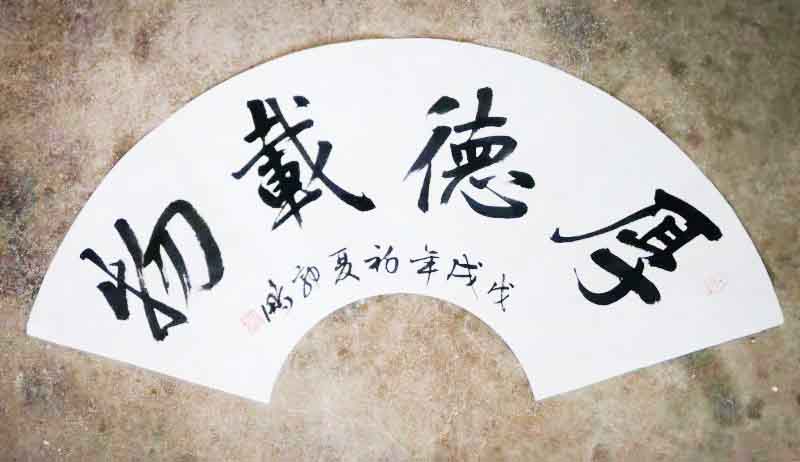 厚德載物
戊戌年初夏